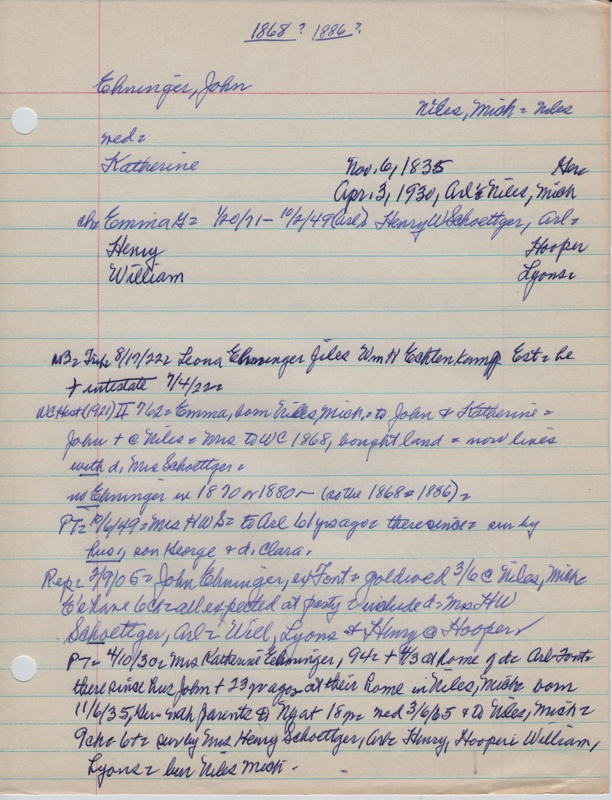 1868? 1886?
Ehninger, John
Niles, Mich = Niles
wed=
Katherine Nov. 6, 1835 Ger=
Apr. 3, 1930, Arl = Niles, Mich
ch= Emma G = 1/20/71 - 10/2/49 (Arl) Henry W Schoettger, Arl =
Henry Hooper
William Lyons=
NB= Trib 8/17/22= Leona Ehninger files Wm H Echtenkamp Est = he
+ intestate 7/4/22=
WC Hist (1921) II 762= Emma, born Niles, Mich. = to John & Katherine =
John + @ Niles = Mrs to WC 1868, bought land = now lives
with d, Mrs Schoettger =
no Ehninger in 1870 or 1880 - (so the 1868 = 1886) =
PT= 10/6/49 = Mrs HWS = to Arl 61 yrs ago = there since = sur by
hus, son George & d. Clara.
Rep= 3/9/05 = John Ehninger, ex Font = gold wed 3/6 @ Niles, Mich =
E's have 6 ch = all expected at party & include d = Mrs HW
Schoettger, Arl = Will, Lyons & Henry @ Hooper
PT= 4/10/30 = Mrs Katherine Ehninger, 94 = + 4/3 at home of d = Arl = Font =
there since hus John + 23 yr ago = at their home in Niles, Mich = born
11/6/35, Ger = with parents to NY at 18 yr = wed 3/6/55 & to Niles, Mich =
9 ch = 6+ = sur by Mrs Henry Schoettger, Arl = Henry, Hooper = William,
Lyons = bur Niles Mich.